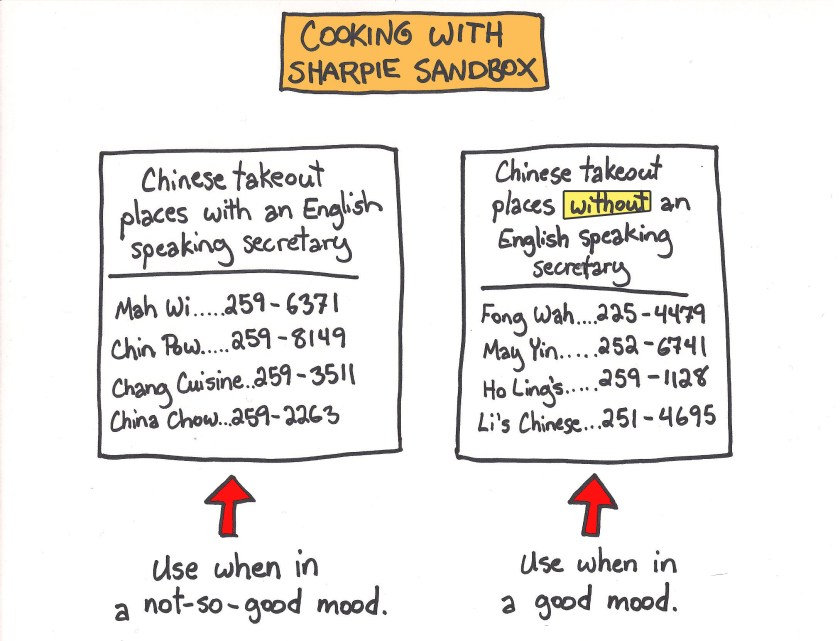 COOKING WITH
SHARPIE SANDBOX
Chinese takeout
places with an English
speaking secretary
Mah Wi.....259-6371
Chin Pow.....259-8149
Chang Cuisine..259-3511
China Chow...259-2263
Use when in
a not-so-good mood.
Chinese takeout
places without an
English speaking
secretary
Fong Wah....225-4479
May Yin.....252-6741
Ho Ling's.....259-1128
Li's Chinese...251-4695
Use when in
a good mood.